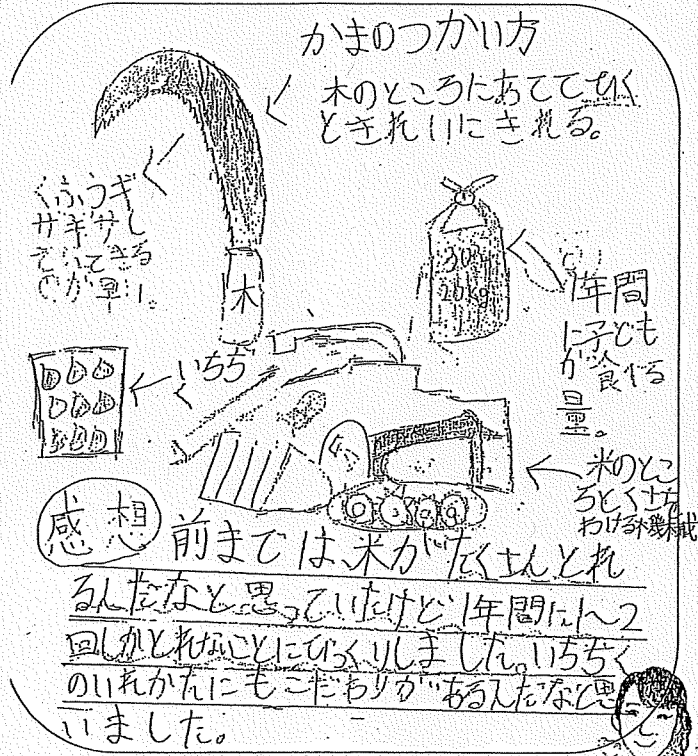 かまのつかい方
木のところにあててひく
ときれいにきれる。
くふうギ
ザギザし
ていてきる
のが早い。
木
30kg
20kg
1年間
に子ども
が食べる
量。
いちぢ
く
米のとこ
ろとくさを
わける機械
感想
前までは、米がたくさんとれ
るんだなと思っていたけど1年間に1~2
回しかとれないことにびっくりしました。いちぢく
のいれかたにもこだわりがあるんだなと思
いました。